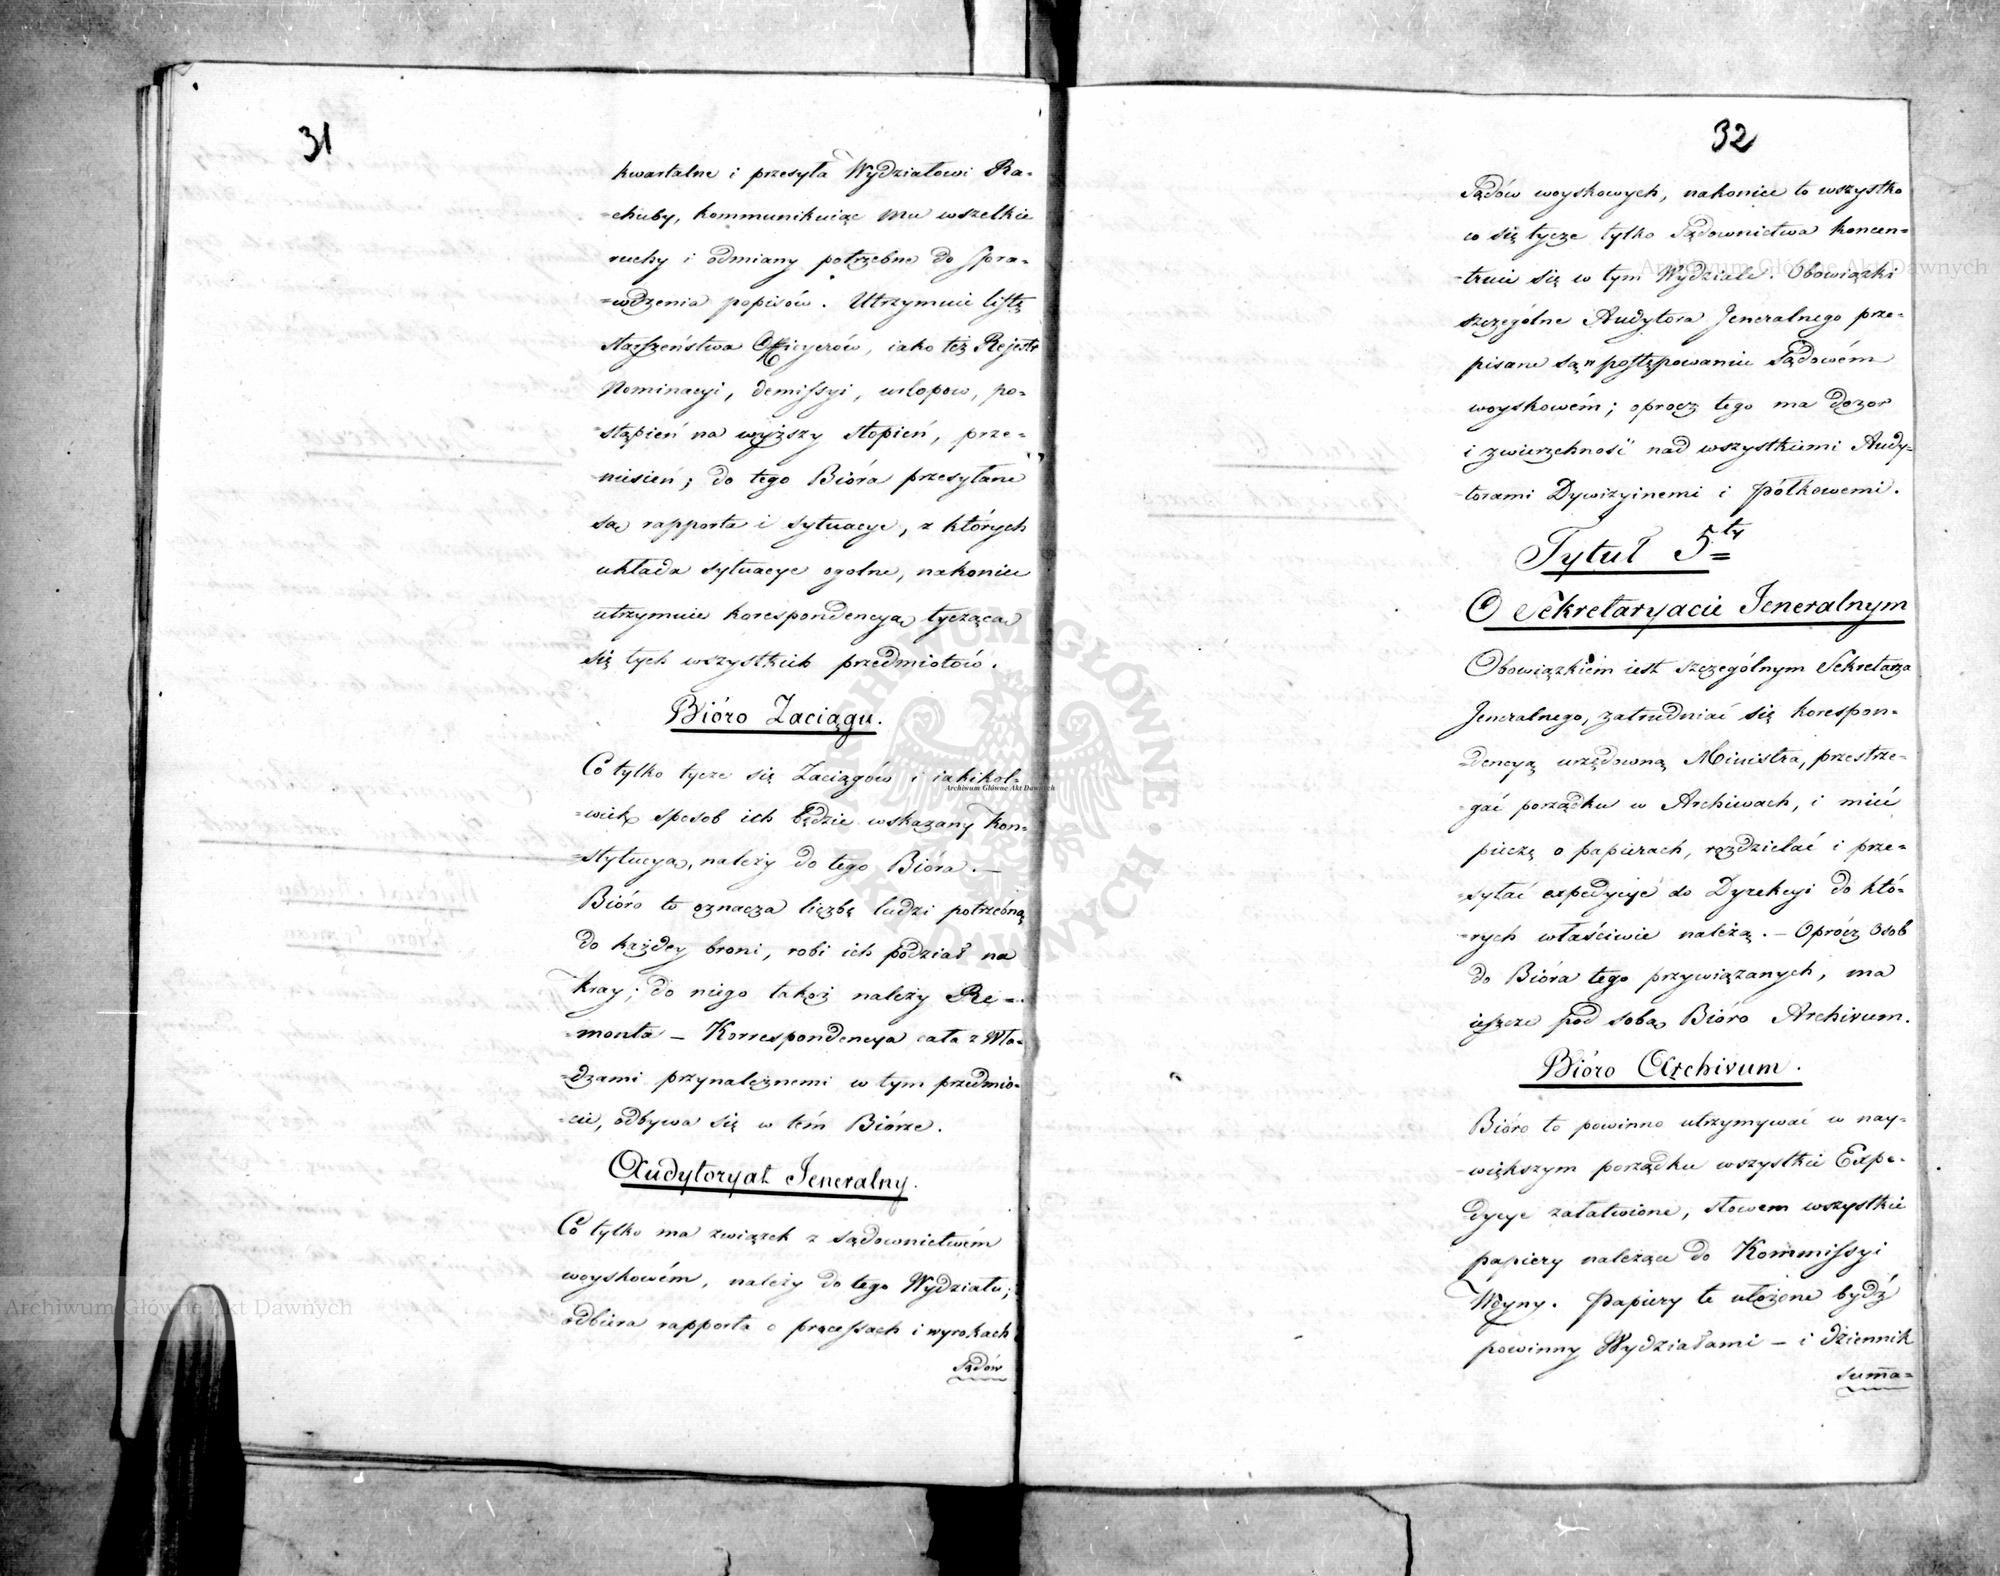 31
kwartalne i przesyła Wydziałowi Ra-
-chuby, kommunikuiąc mu wszelkie
ruchy i odmiany potrzebne do spra-
-wdzenia popisów. Utrzymuie listę
starszeństwa Officyerów, iako też Rejestr
Nominacyi, demissyi, urlopow, po-
-stąpień na wyższy stopień, prze-
-niesień; do tego Bióra przesyłane
są rapporta i sytuacye, z których
układa sytuacye ogolne, nakoniec
utrzymuie korespondencyą tyczącą
się tych wszystkich przedmiotów.
Bióro Zaciągu.
Co tylko tycze się Zaciągów i iakikol-
-wiek sposob ich będzie wskazany Kon-
-stytucyą, należy do tego Bióra. —
Bióro to oznacza liczbę ludzi potrzebną
do każdey broni, robi ich podział na
kray; do niego takoż należy Re-
-monta — Korrespondencya cała z Wła-
-dzami przynależnemi w tym przedmio-
-cie, odbywa się w tém Biórze.
Audytoryat Jeneralny.
Co tylko ma związek z sądownictwém
woyskowém, należy do tego Wydziału;
odbiera rapporta o processach i wyrokach
Sądów
32
Sądów woyskowych, nakoniec to wszystko
co się tycze tylko Sądownictwa koncen-
-truie się w tym Wydziale. Obowiązki
szczególne Audytora Jeneralnego prze-
pisane są w postępowaniu Sądowém
woyskowém; oprocz tego ma dozor
i zwierzchność nad wszystkiemi Audy-
-torami Dywizyinemi i półkowemi.
Tytuł 5ty
O Sekretaryacie Jeneralnym
Obowiązkiem iest szczególnym Sekretarza
Jeneralnego, zatrudniać się korespon-
-dencyą urzędowną Ministra, przestrze-
-gać porządku w Archiwach, i mieć
pieczę o papierach, rozdzielać i prze-
-syłać expedycye do Dyrekcyi do któ-
-rych właściwie należą. — Oprócz Osob
do Bióra tego przywiązanych, ma
ieszcze pod sobą Bióro Archivum.
Bióro Archivum.
Bióro to powinno utrzymywać w nay-
-większym porządku wszystkie Expe-
dycye załatwione, słowem wszystkie
papiery należące do Kommissyi
Woyny. Papiery te ułożone bydź
powinny Wydziałami — i dziennik
suma-
Archiwum Główne Akt Dawnych
Archiwum Główne Akt Dawnych
Archiwum Główne Akt Dawnych
ARCHIWUM GŁÓWNE AKT DAWNYCH